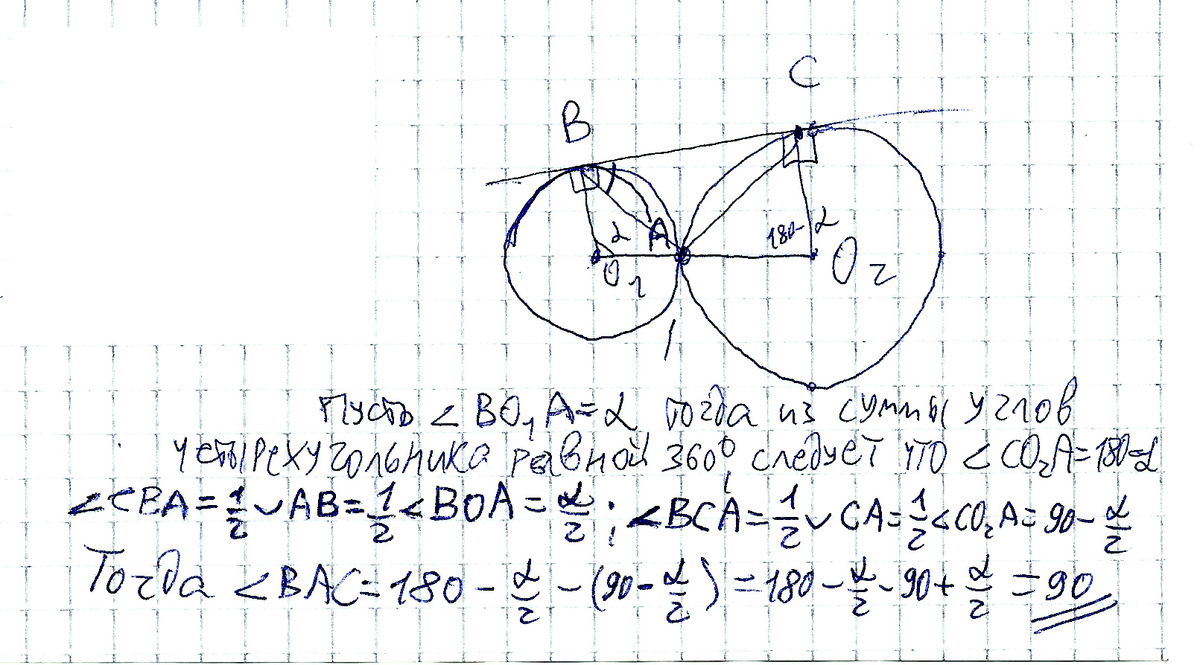 C
B
α A 180-α
O₁ O₂
Пусть ∠BO₁A=α тогда из суммы углов
четырехугольника равной 360° следует что ∠CO₂A=180-α
∠CBA=1/2 ◡AB=1/2 ∠BOA=α/2; ∠BCA=1/2 ◡CA=1/2 ∠CO₂A=90-α/2
Тогда ∠BAC=180-α/2-(90-α/2)=180-α/2-90+α/2=90